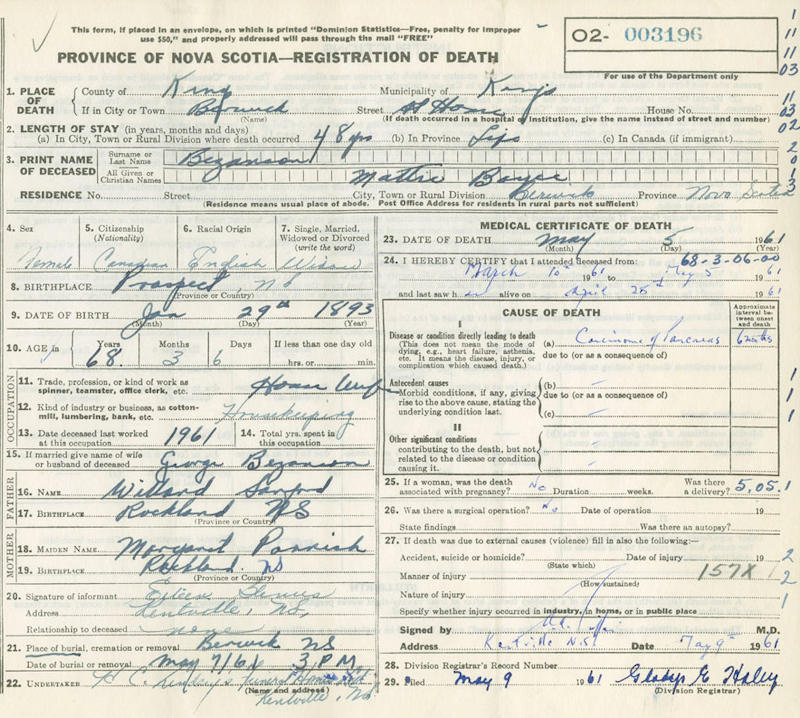 This form, if placed in an envelope, on which is printed "Dominion Statistics—Free, penalty for improper
use $50," and properly addressed will pass through the mail "FREE"
O2- 003196
PROVINCE OF NOVA SCOTIA—REGISTRATION OF DEATH
For use of the Department only
1. PLACE OF DEATH County of Kings Municipality of Kings
If in City or Town Berwick Street At Home House No.
(Name) (If death occurred in a hospital or institution, give the name instead of street and number)
2. LENGTH OF STAY (in years, months and days)
(a) In City, Town or Rural Division where death occurred 48 yrs (b) In Province Life (c) In Canada (if immigrant)
3. PRINT NAME OF DECEASED Surname or Last Name Bezanson
All Given or Christian Names Mattie Boyce
RESIDENCE No. Street City, Town or Rural Division Berwick Province Nova Scotia
(Residence means usual place of abode. Post Office Address for residents in rural parts not sufficient)
4. Sex 5. Citizenship (Nationality) 6. Racial Origin 7. Single, Married, Widowed or Divorced (write the word)
Female Canadian English Widow
8. BIRTHPLACE Prospect, NS
(Province or Country)
9. DATE OF BIRTH Jan 29th 1893
(Month) (Day) (Year)
10. AGE in Years Months Days If less than one day old
68 3 6 hrs. or min.
OCCUPATION
11. Trade, profession, or kind of work as spinner, teamster, office clerk, etc. House Wife
12. Kind of industry or business, as cotton-mill, lumbering, bank, etc. Housekeeping
13. Date deceased last worked at this occupation 1961 14. Total yrs. spent in this occupation
15. If married give name of wife or husband of deceased George Bezanson
FATHER
16. Name Willard Sanford
17. Birthplace Rockland NS
(Province or Country)
MOTHER
18. Maiden Name Margaret Parrish
19. Birthplace Rockland, NS
(Province or Country)
20. Signature of informant Eileen
Address Kentville, NS,
Relationship to deceased none
21. Place of burial, cremation or removal Berwick NS
Date of burial or removal May 7/61 3 P.M
22. UNDERTAKER H C Lindsay's Funeral Home
(Name and address) Kentville, NS
MEDICAL CERTIFICATE OF DEATH
23. DATE OF DEATH May 5 1961
(Month) (Day) (Year)
24. I HEREBY CERTIFY that I attended deceased from: 68-3-06-00
March 10th 1961 to May 5 1961
and last saw her alive on April 25th 1961
CAUSE OF DEATH
Approximate interval between onset and death
I
Disease or condition directly leading to death (a) Carcinoma of Pancreas 6 months
(This does not mean the mode of dying, e.g., heart failure, asthenia, etc. It means the disease, injury, or complication which caused death.)
due to (or as a consequence of)
Antecedent causes (b)
Morbid conditions, if any, giving rise to the above cause, stating the underlying condition last.
due to (or as a consequence of)
(c)
II
Other significant conditions
contributing to the death, but not related to the disease or condition causing it.
25. If a woman, was the death associated with pregnancy? No Duration weeks. Was there a delivery? 5,05,1
26. Was there a surgical operation? No Date of operation 19
State findings Was there an autopsy?
27. If death was due to external causes (violence) fill in also the following:—
Accident, suicide or homicide? Date of injury 19
(State which)
Manner of injury 157X
(How sustained)
Nature of injury
Specify whether injury occurred in industry, in home, or in public place
Signed by M.D.
Address Kentville N.S. Date May 9th 1961
28. Division Registrar's Record Number
29. Filed May 9 1961 Gladys E Haley
(Division Registrar)